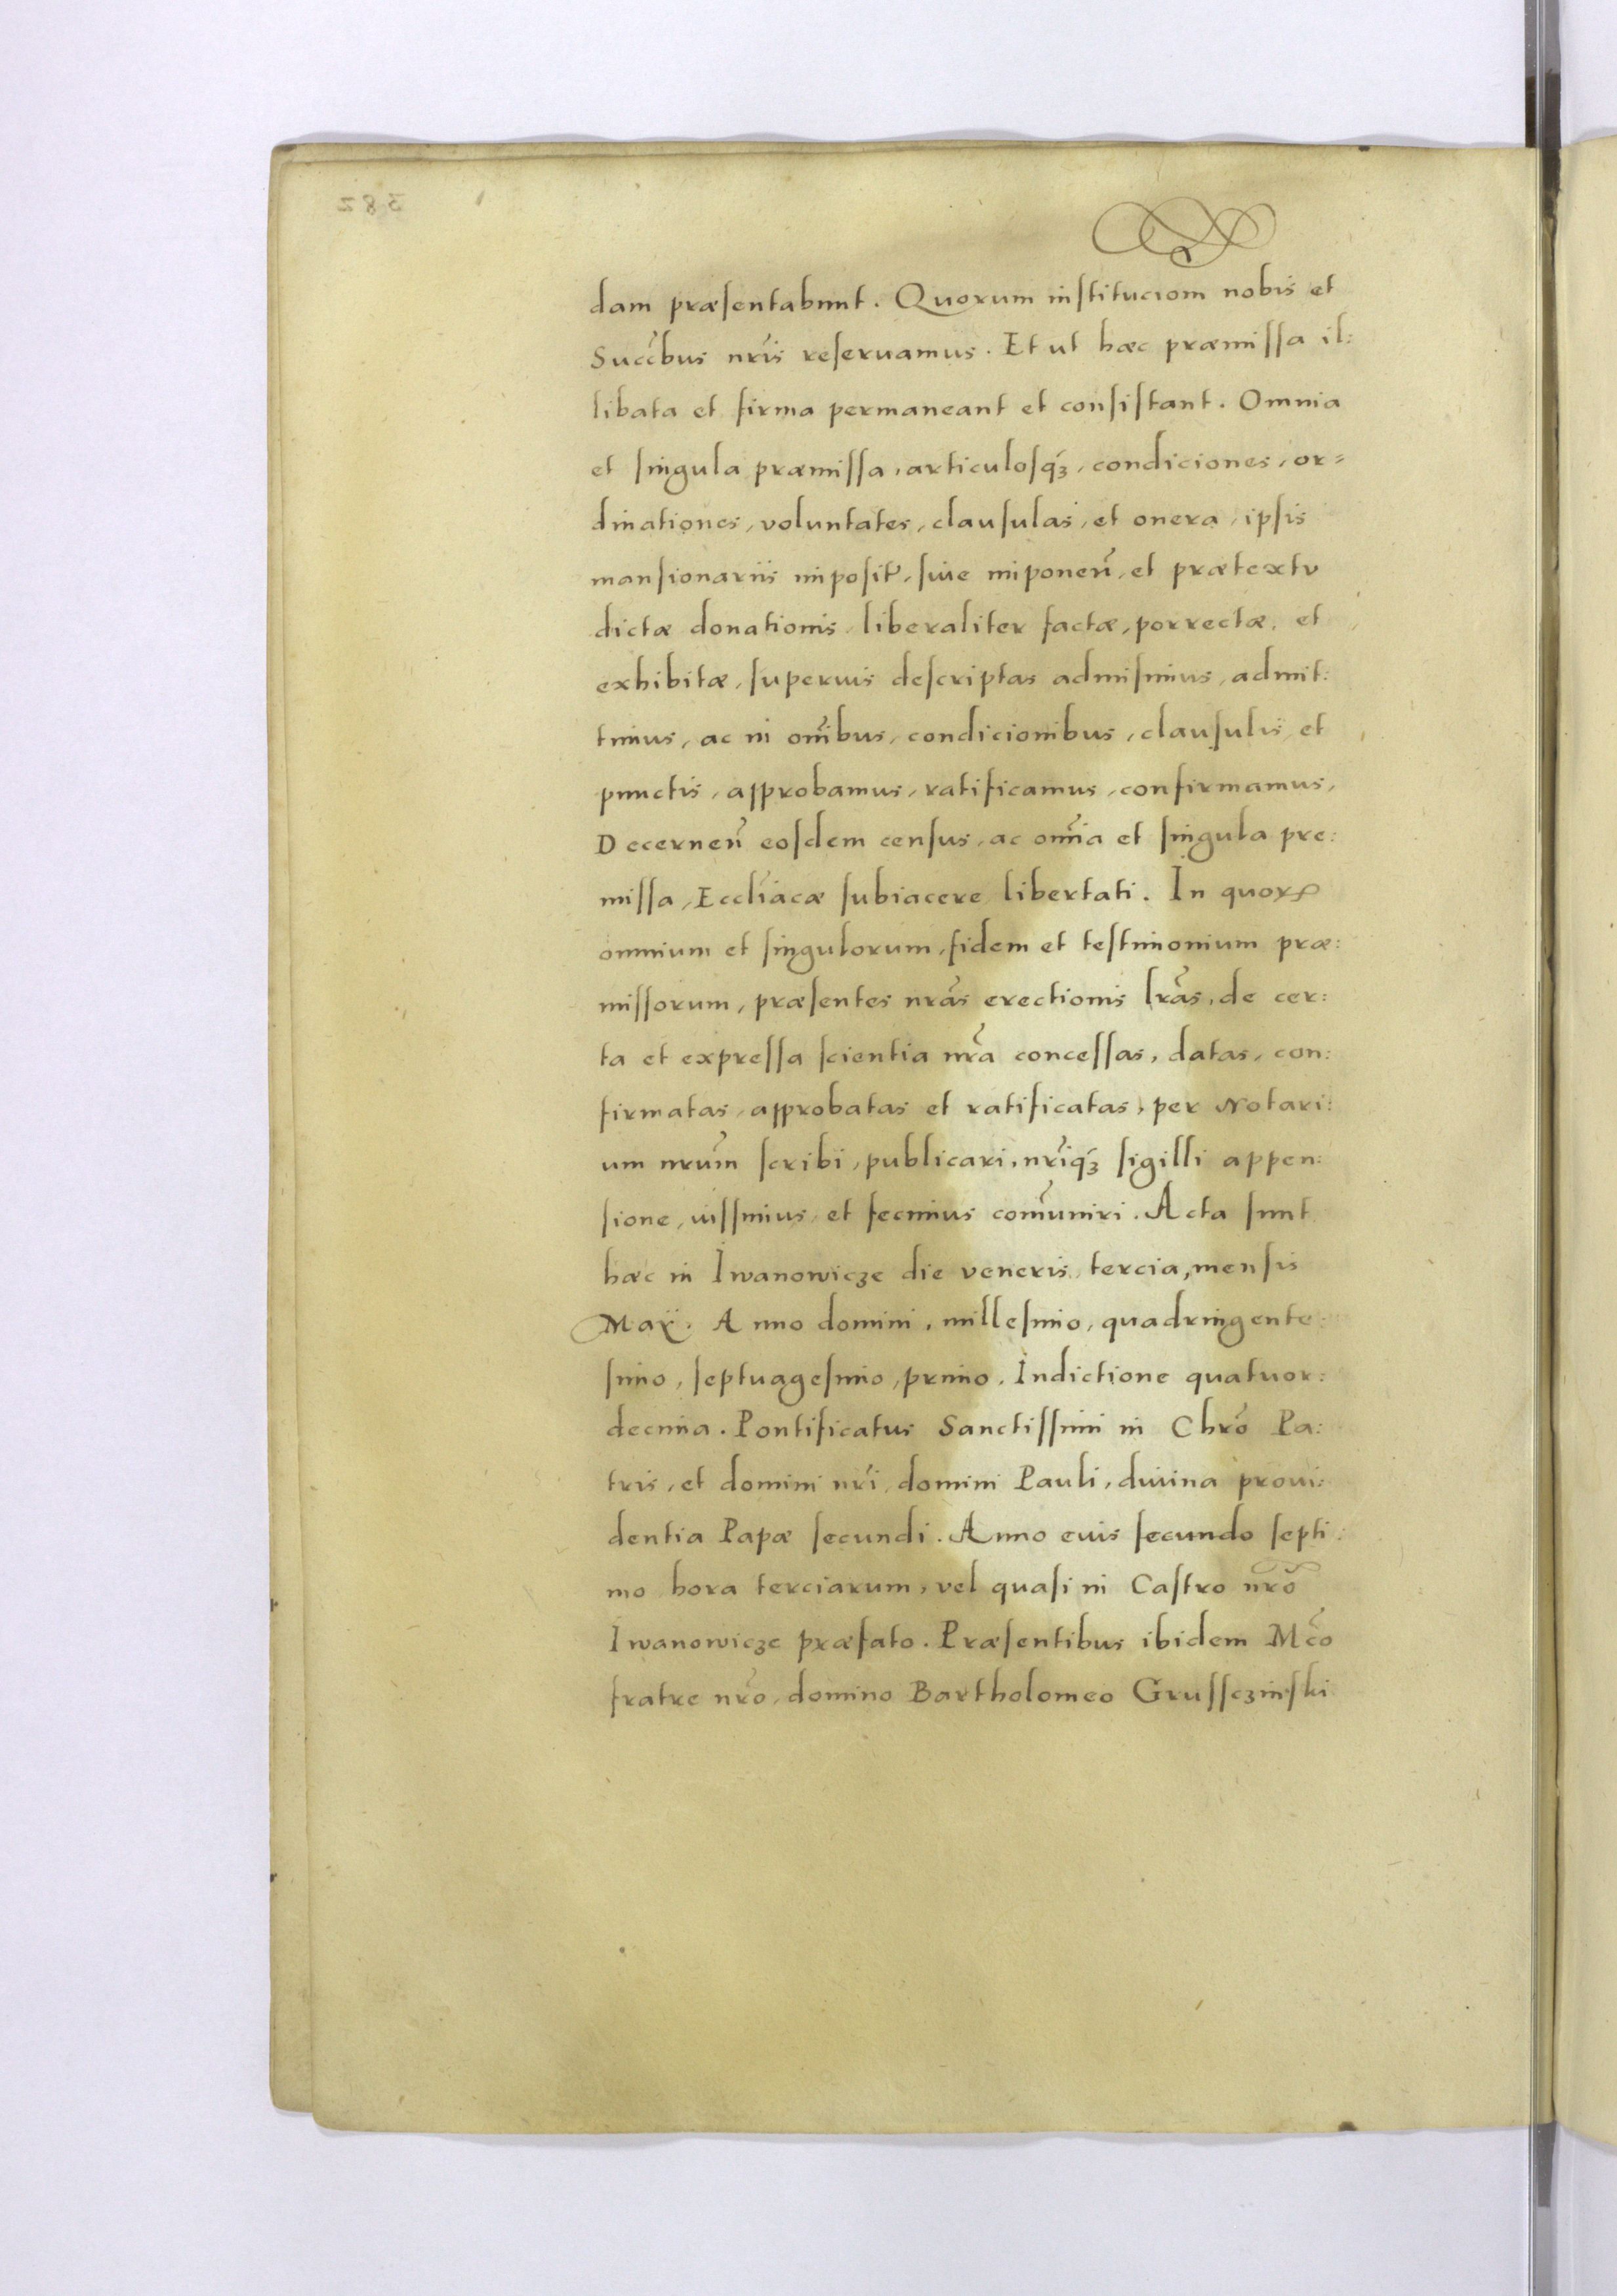 382
dam præsentabunt. Quorum institucioni nobis et
Succ̃bus nr̃is reseruamus. Et ut hæc præmissa il:
libata et firma permaneant et consistant. Omnia
et singula præmissa, articulosqꝫ, condiciones, or=
dinationes, voluntates, clausulas, et onera, ipsis
mansionariis imposit̃, siue imponen̄, et prætextu
dictæ donationis liberaliter factæ, porrectæ, et
exhibitæ, superius descriptas admisimus, admit:
timus, ac in om̃ibus, condicionibus, clausulis, et
punctis, approbamus, ratificamus, confirmamus,
Decernen̄ eosdem census, ac om̃ia et singula pre:
missa, Eccl̃iacæ subiacere libertati. In quoꝝ
omnium et singulorum, fidem et testimonium præ:
missorum, præsentes nr̃as erectionis lr̃as, de cer:
ta et expressa scientia nr̃a concessas, datas, con:
firmatas, approbatas et ratificatas, per Notari:
um nr̃um scribi, publicari, nr̃iqꝫ sigilli appen:
sione, iussimus et fecimus com̃uniri. Acta sunt
hæc in Iwanowicze die veneris tercia, mensis
Maÿ. Anno domini, millesimo, quadringente:
simo, septuagesimo, primo. Indictione quatuor:
decima. Pontificatus Sanctissimi in Chr̃o Pa:
tris, et domini nr̃i, domini Pauli, diuina proui:
dentia Papæ secundi. Anno euis secundo septi:
mo hora terciarum, vel quasi in Castro nr̃o
Iwanowicze præfato. Præsentibus ibidem Mc̃o
fratre nr̃o, domino Bartholomeo Grussczinski